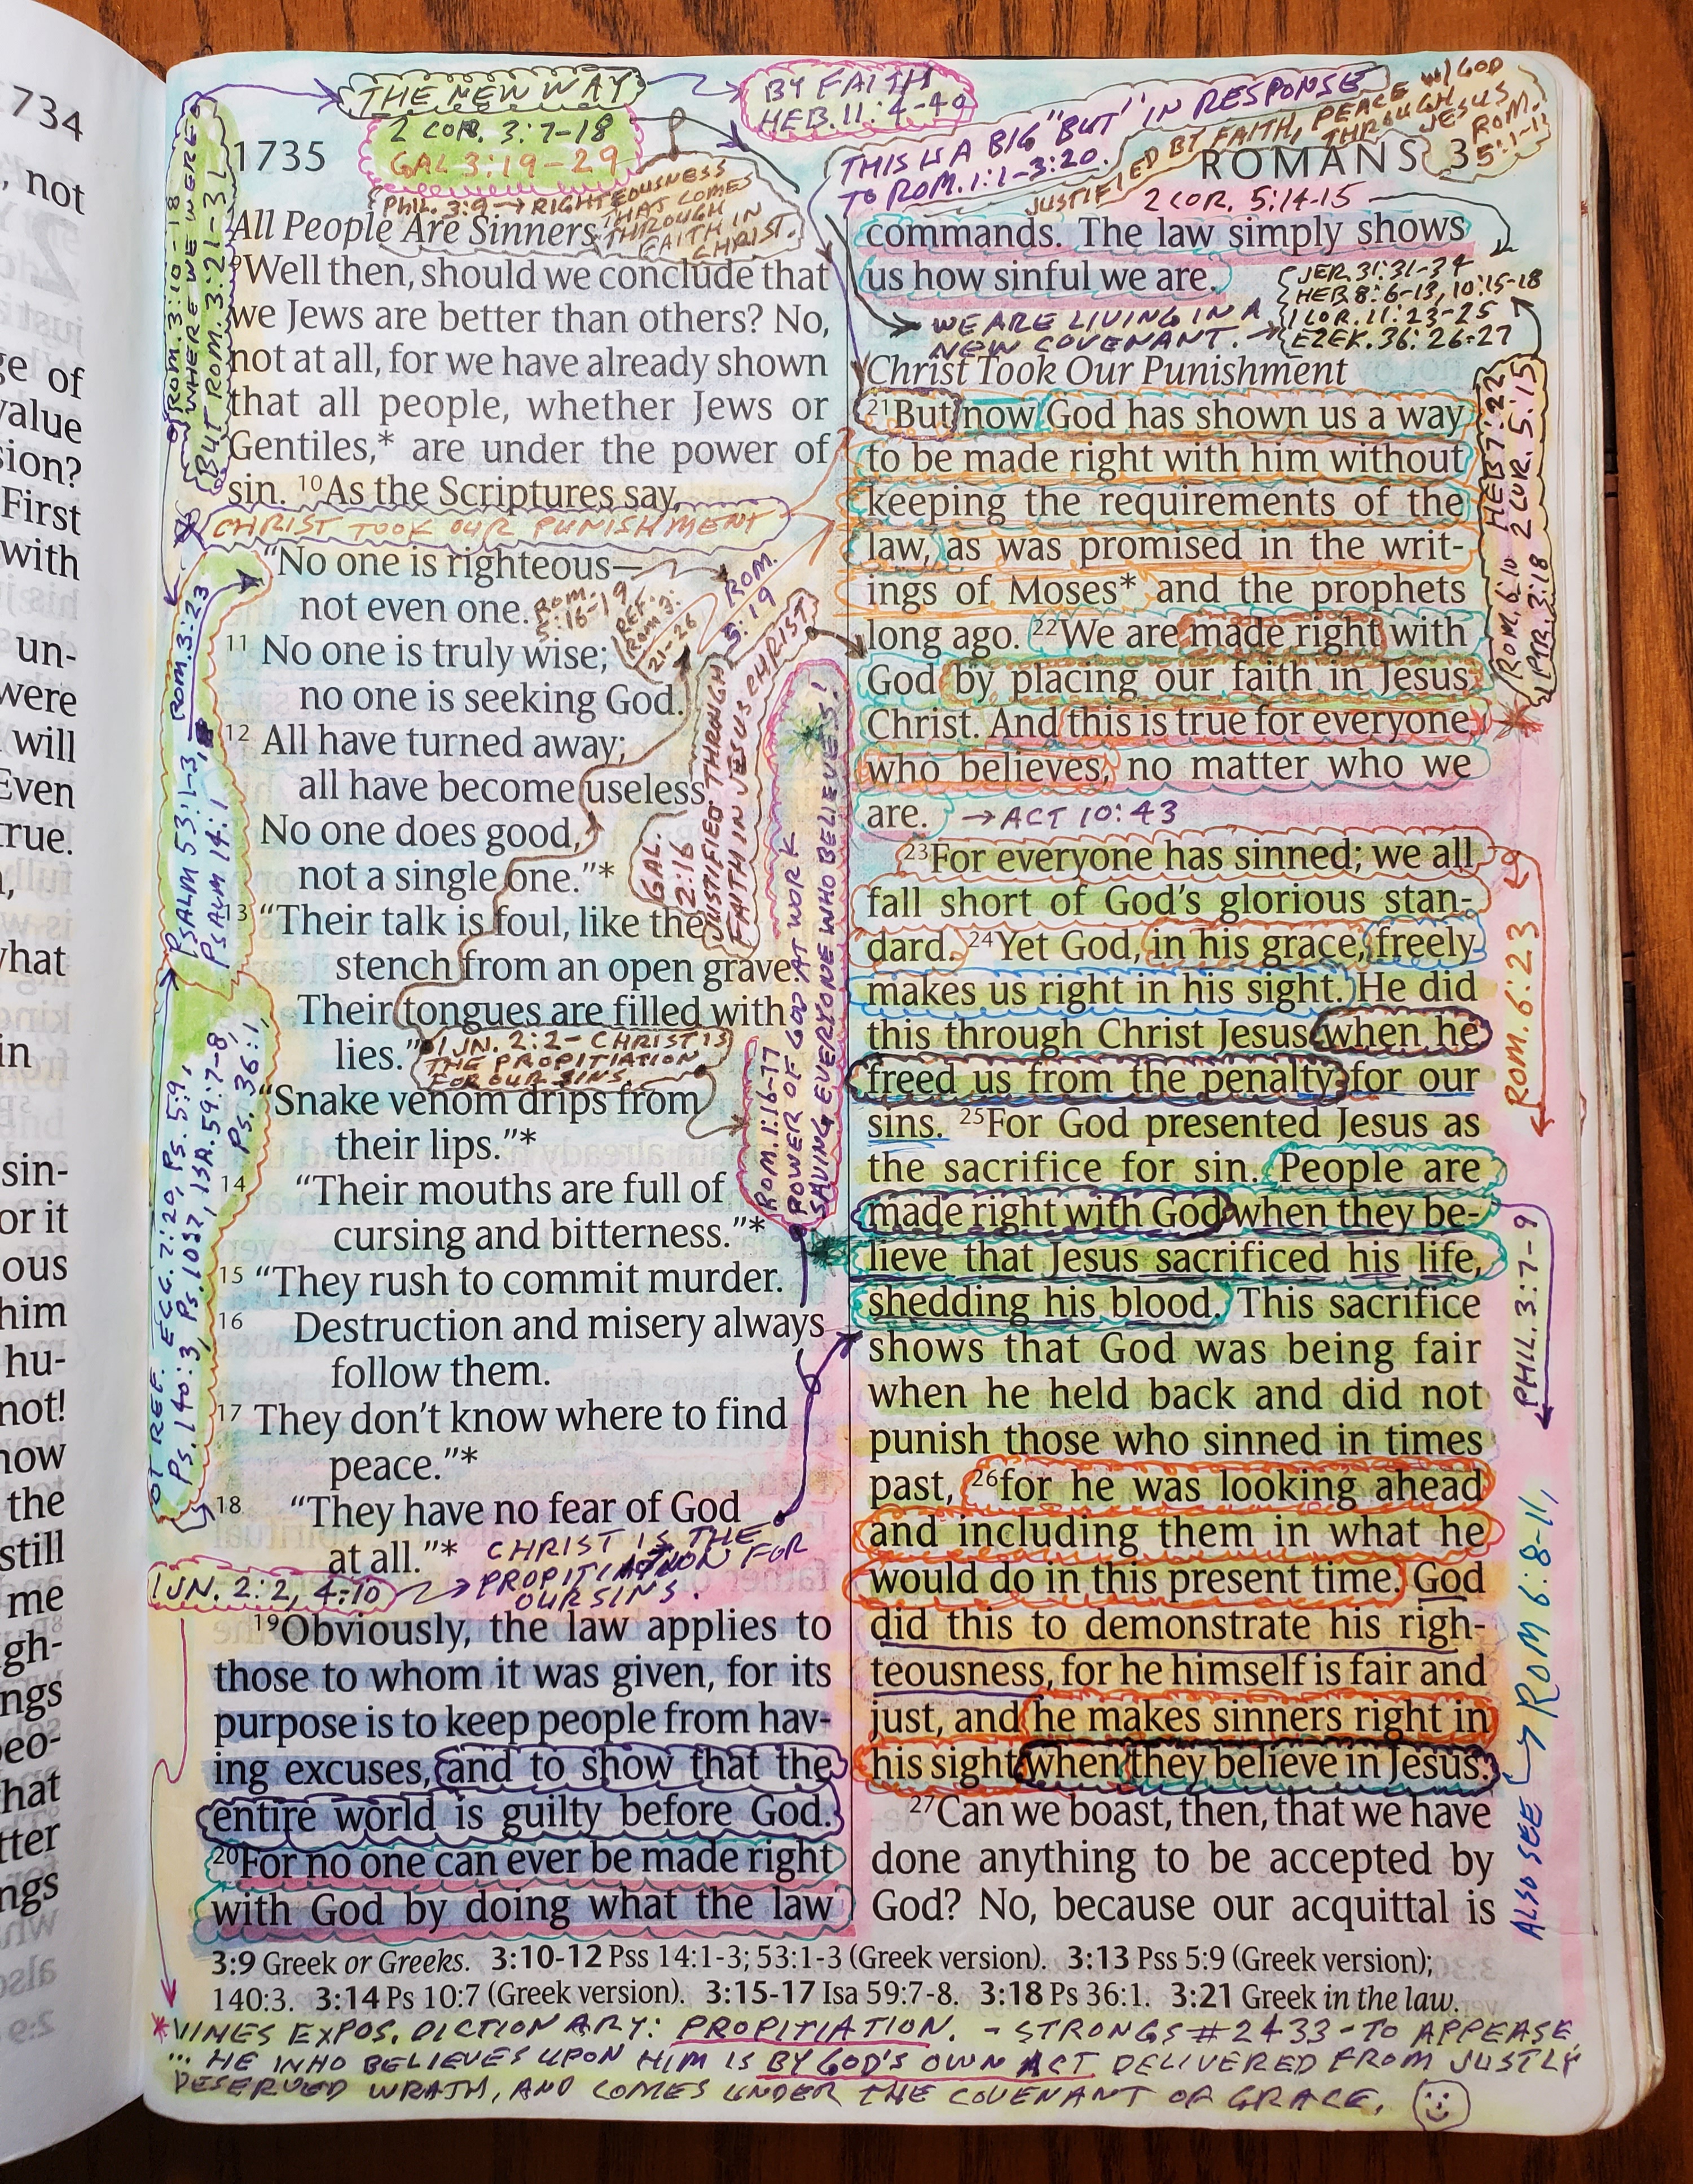 734
, not
ge of
value
sion?
First
with
un-
were
will
Even
true.
,
what
in
sin-
or it
ous
him
hu-
not!
now
the
still
me
gh-
ngs
peo-
hat
tter
ngs
THE NEW WAY
2 COR. 3:7-18
GAL 3:19-29
BY FAITH
HEB. 11:4-40
THIS IS A BIG "BUT" IN RESPONSE
TO ROM. 1:1-3:20.
JUSTIFIED BY FAITH, PEACE W/ GOD
THROUGH
JESUS
ROM.
5:1-11
1735
ROMANS 3
PHIL. 3:9 → RIGHTEOUSNESS
THAT COMES
THROUGH
FAITH IN
CHRIST.
2 COR. 5:14-15
ROM. 3:10-18
WHERE WE WERE
BUT ROM. 3:21-31
All People Are Sinners
9Well then, should we conclude that
we Jews are better than others? No,
not at all, for we have already shown
that all people, whether Jews or
Gentiles,* are under the power of
sin. 10As the Scriptures say,
CHRIST TOOK OUR PUNISHMENT
“No one is righteous—
not even one.
ROM.
5:16-19
REF.
ROM 3:
21-26
ROM.
5:19
11 No one is truly wise;
no one is seeking God.
12 All have turned away;
all have become useless.
No one does good,
not a single one.”*
GAL.
2:16
JUSTIFIED THROUGH
FAITH IN JESUS CHRIST
13 “Their talk is foul, like the
stench from an open grave.
Their tongues are filled with
lies.”
1 JN. 2:2 - CHRIST IS
THE PROPITIATION
FOR OUR SINS
“Snake venom drips from
their lips.”*
14 “Their mouths are full of
cursing and bitterness.”*
15 “They rush to commit murder.
16 Destruction and misery always
follow them.
17 They don’t know where to find
peace.”*
18 “They have no fear of God
at all.”*
CHRIST IS THE
PROPITIATION FOR
OUR SINS.
1 JN. 2:2, 4:10
ROM. 3:23
PSALM 53:1-3,
PSALM 14:1
OT REF. ECC. 7:20, PS. 5:9,
PS. 140:3, PS. 10:7, ISA. 59:7-8,
PS. 36:1,
ROM. 1:16-17
POWER OF GOD AT WORK
SAVING EVERYONE WHO BELIEVES!
19Obviously, the law applies to
those to whom it was given, for its
purpose is to keep people from hav-
ing excuses, and to show that the
entire world is guilty before God.
20For no one can ever be made right
with God by doing what the law
commands. The law simply shows
us how sinful we are.
WE ARE LIVING IN A
NEW COVENANT. →
JER. 31:31-34
HEB. 8:6-13, 10:15-18
1 COR. 11:23-25
EZEK. 36:26-27
Christ Took Our Punishment
21But now God has shown us a way
to be made right with him without
keeping the requirements of the
law, as was promised in the writ-
ings of Moses* and the prophets
long ago. 22We are made right with
God by placing our faith in Jesus
Christ. And this is true for everyone
who believes, no matter who we
are. → ACT 10:43
23For everyone has sinned; we all
fall short of God’s glorious stan-
dard. 24Yet God, in his grace, freely
makes us right in his sight. He did
this through Christ Jesus when he
freed us from the penalty for our
sins. 25For God presented Jesus as
the sacrifice for sin. People are
made right with God when they be-
lieve that Jesus sacrificed his life,
shedding his blood. This sacrifice
shows that God was being fair
when he held back and did not
punish those who sinned in times
past, 26for he was looking ahead
and including them in what he
would do in this present time. God
did this to demonstrate his righ-
teousness, for he himself is fair and
just, and he makes sinners right in
his sight when they believe in Jesus.
27Can we boast, then, that we have
done anything to be accepted by
God? No, because our acquittal is
HEB 7:22
2 COR. 5:15
ROM. 6:10
1 PTR. 3:18
ROM. 6:23
PHIL. 3:7-9
ALSO SEE → ROM 6:8-11,
3:9 Greek or Greeks. 3:10-12 Pss 14:1-3; 53:1-3 (Greek version). 3:13 Pss 5:9 (Greek version);
140:3. 3:14 Ps 10:7 (Greek version). 3:15-17 Isa 59:7-8. 3:18 Ps 36:1. 3:21 Greek in the law.
*VINES EXPOS. DICTIONARY: PROPITIATION. - STRONGS #2433 - TO APPEASE,
... HE WHO BELIEVES UPON HIM IS BY GOD'S OWN ACT DELIVERED FROM JUSTLY
DESERVED WRATH, AND COMES UNDER THE COVENANT OF GRACE.